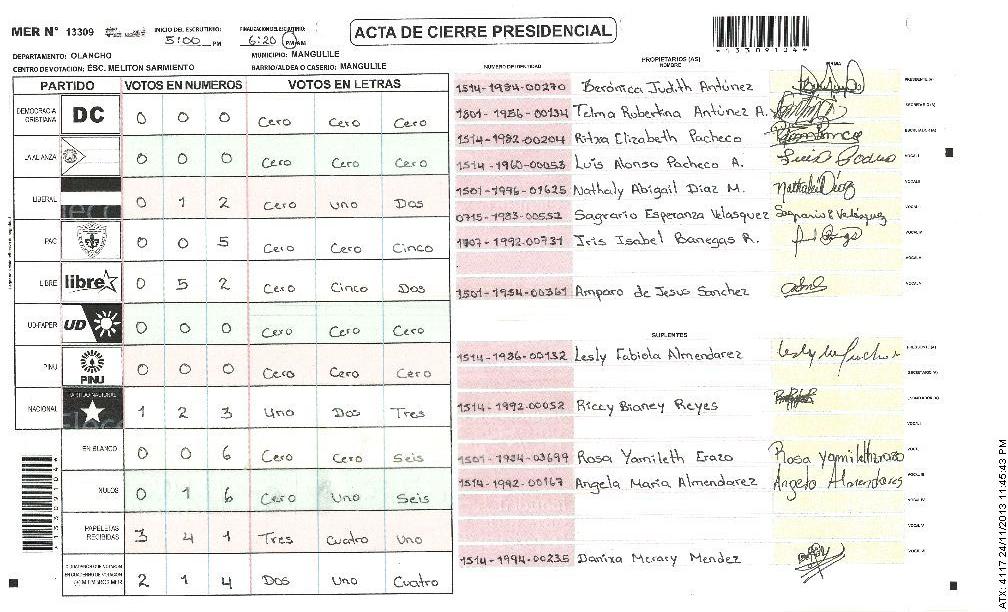 MER N° 13309 INICIO DEL ESCRUTINIO: 5:00 PM FINALIZACION DEL ESCRUTINIO: 6:20 PM AM
ACTA DE CIERRE PRESIDENCIAL
DEPARTAMENTO: OLANCHO MUNICIPIO: MANGULILE
CENTRO DE VOTACION: ESC. MELITON SARMIENTO BARRIO/ALDEA O CASERIO: MANGULILE
PARTIDO VOTOS EN NUMEROS VOTOS EN LETRAS
DEMOCRACIA CRISTIANA DC 0 0 0 Cero Cero Cero
LA ALIANZA 0 0 0 Cero Cero Cero
LIBERAL 0 1 2 Cero Uno Dos
PAC 0 0 5 Cero Cero Cinco
LIBRE libre 0 5 2 Cero Cinco Dos
UD-FAPER UD 0 0 0 Cero Cero Cero
PINU PINU 0 0 0 Cero Cero Cero
NACIONAL PARTIDO NACIONAL 1 2 3 Uno Dos Tres
EN BLANCO 0 0 6 Cero Cero Seis
NULOS 0 1 6 Cero Uno Seis
PAPELETAS RECIBIDAS 3 4 1 Tres Cuatro Uno
2 1 4 Dos Uno Cuatro
NUMERO DE IDENTIDAD PROPIETARIOS (AS) NOMBRE FIRMA
1514-1984-00270 Berónica Judith Antúnez PRESIDENTE (A)
1801-1986-00134 Telma Robertina Antúnez A. SECRETARIO (A)
1514-1982-00204 Ritxa Elizabeth Pacheco ESCRUTADOR (A)
1514-1960-00053 Luis Alonso Pacheco A. VOCAL I
1501-1996-01625 Nathaly Abigail Diaz M. Nathali Díaz VOCAL II
0715-1983-00552 Sagrario Esperanza Velasquez Sagrario E Velásquez
1807-1992-00731 Iris Isabel Banegas R. VOCAL IV
1501-1954-00361 Amparo de Jesus Sanchez
SUPLENTES
1514-1986-00132 Lesly Fabiola Almendarez PRESIDENTE (A)
SECRETARIO (A)
1514-1992-00052 Riccy Bianey Reyes
1501-1984-03699 Rosa Yamileth Erazo Rosa Yamileth Erazo
1514-1992-00167 Angela Maria Almendarez Angela Almendares
1514-1994-00235 Darixa Merary Mendez
ATX: 4117 24/11/2013 11:45:43 PM